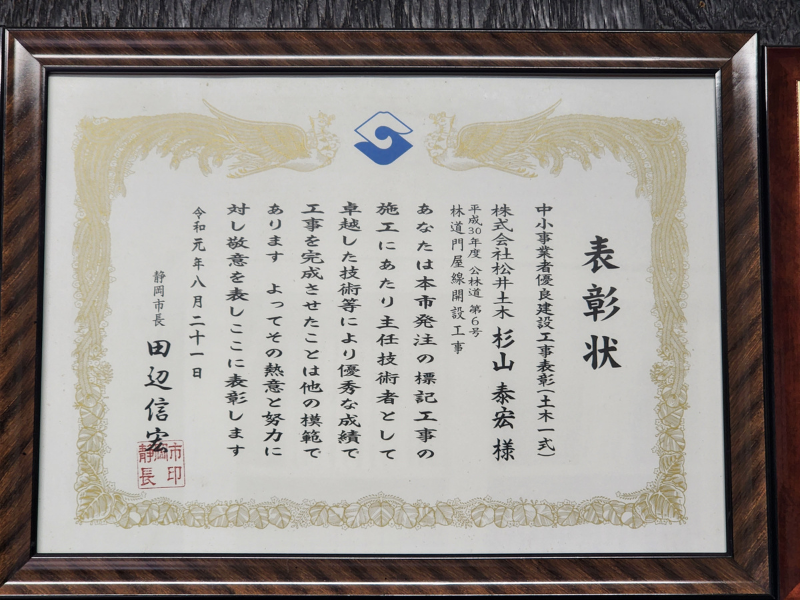 表彰状
中小事業者優良建設工事表彰(土木一式)
株式会社松井土木 杉山 泰宏 様
平成30年度 公林道 第6号
林道門屋線開設工事
あなたは本市発注の標記工事の
施工にあたり主任技術者として
卓越した技術等により優秀な成績で
工事を完成させたことは他の模範で
あります よってその熱意と努力に
対し敬意を表しここに表彰します
令和元年八月二十一日
静岡市長 田辺信宏
静岡市長印